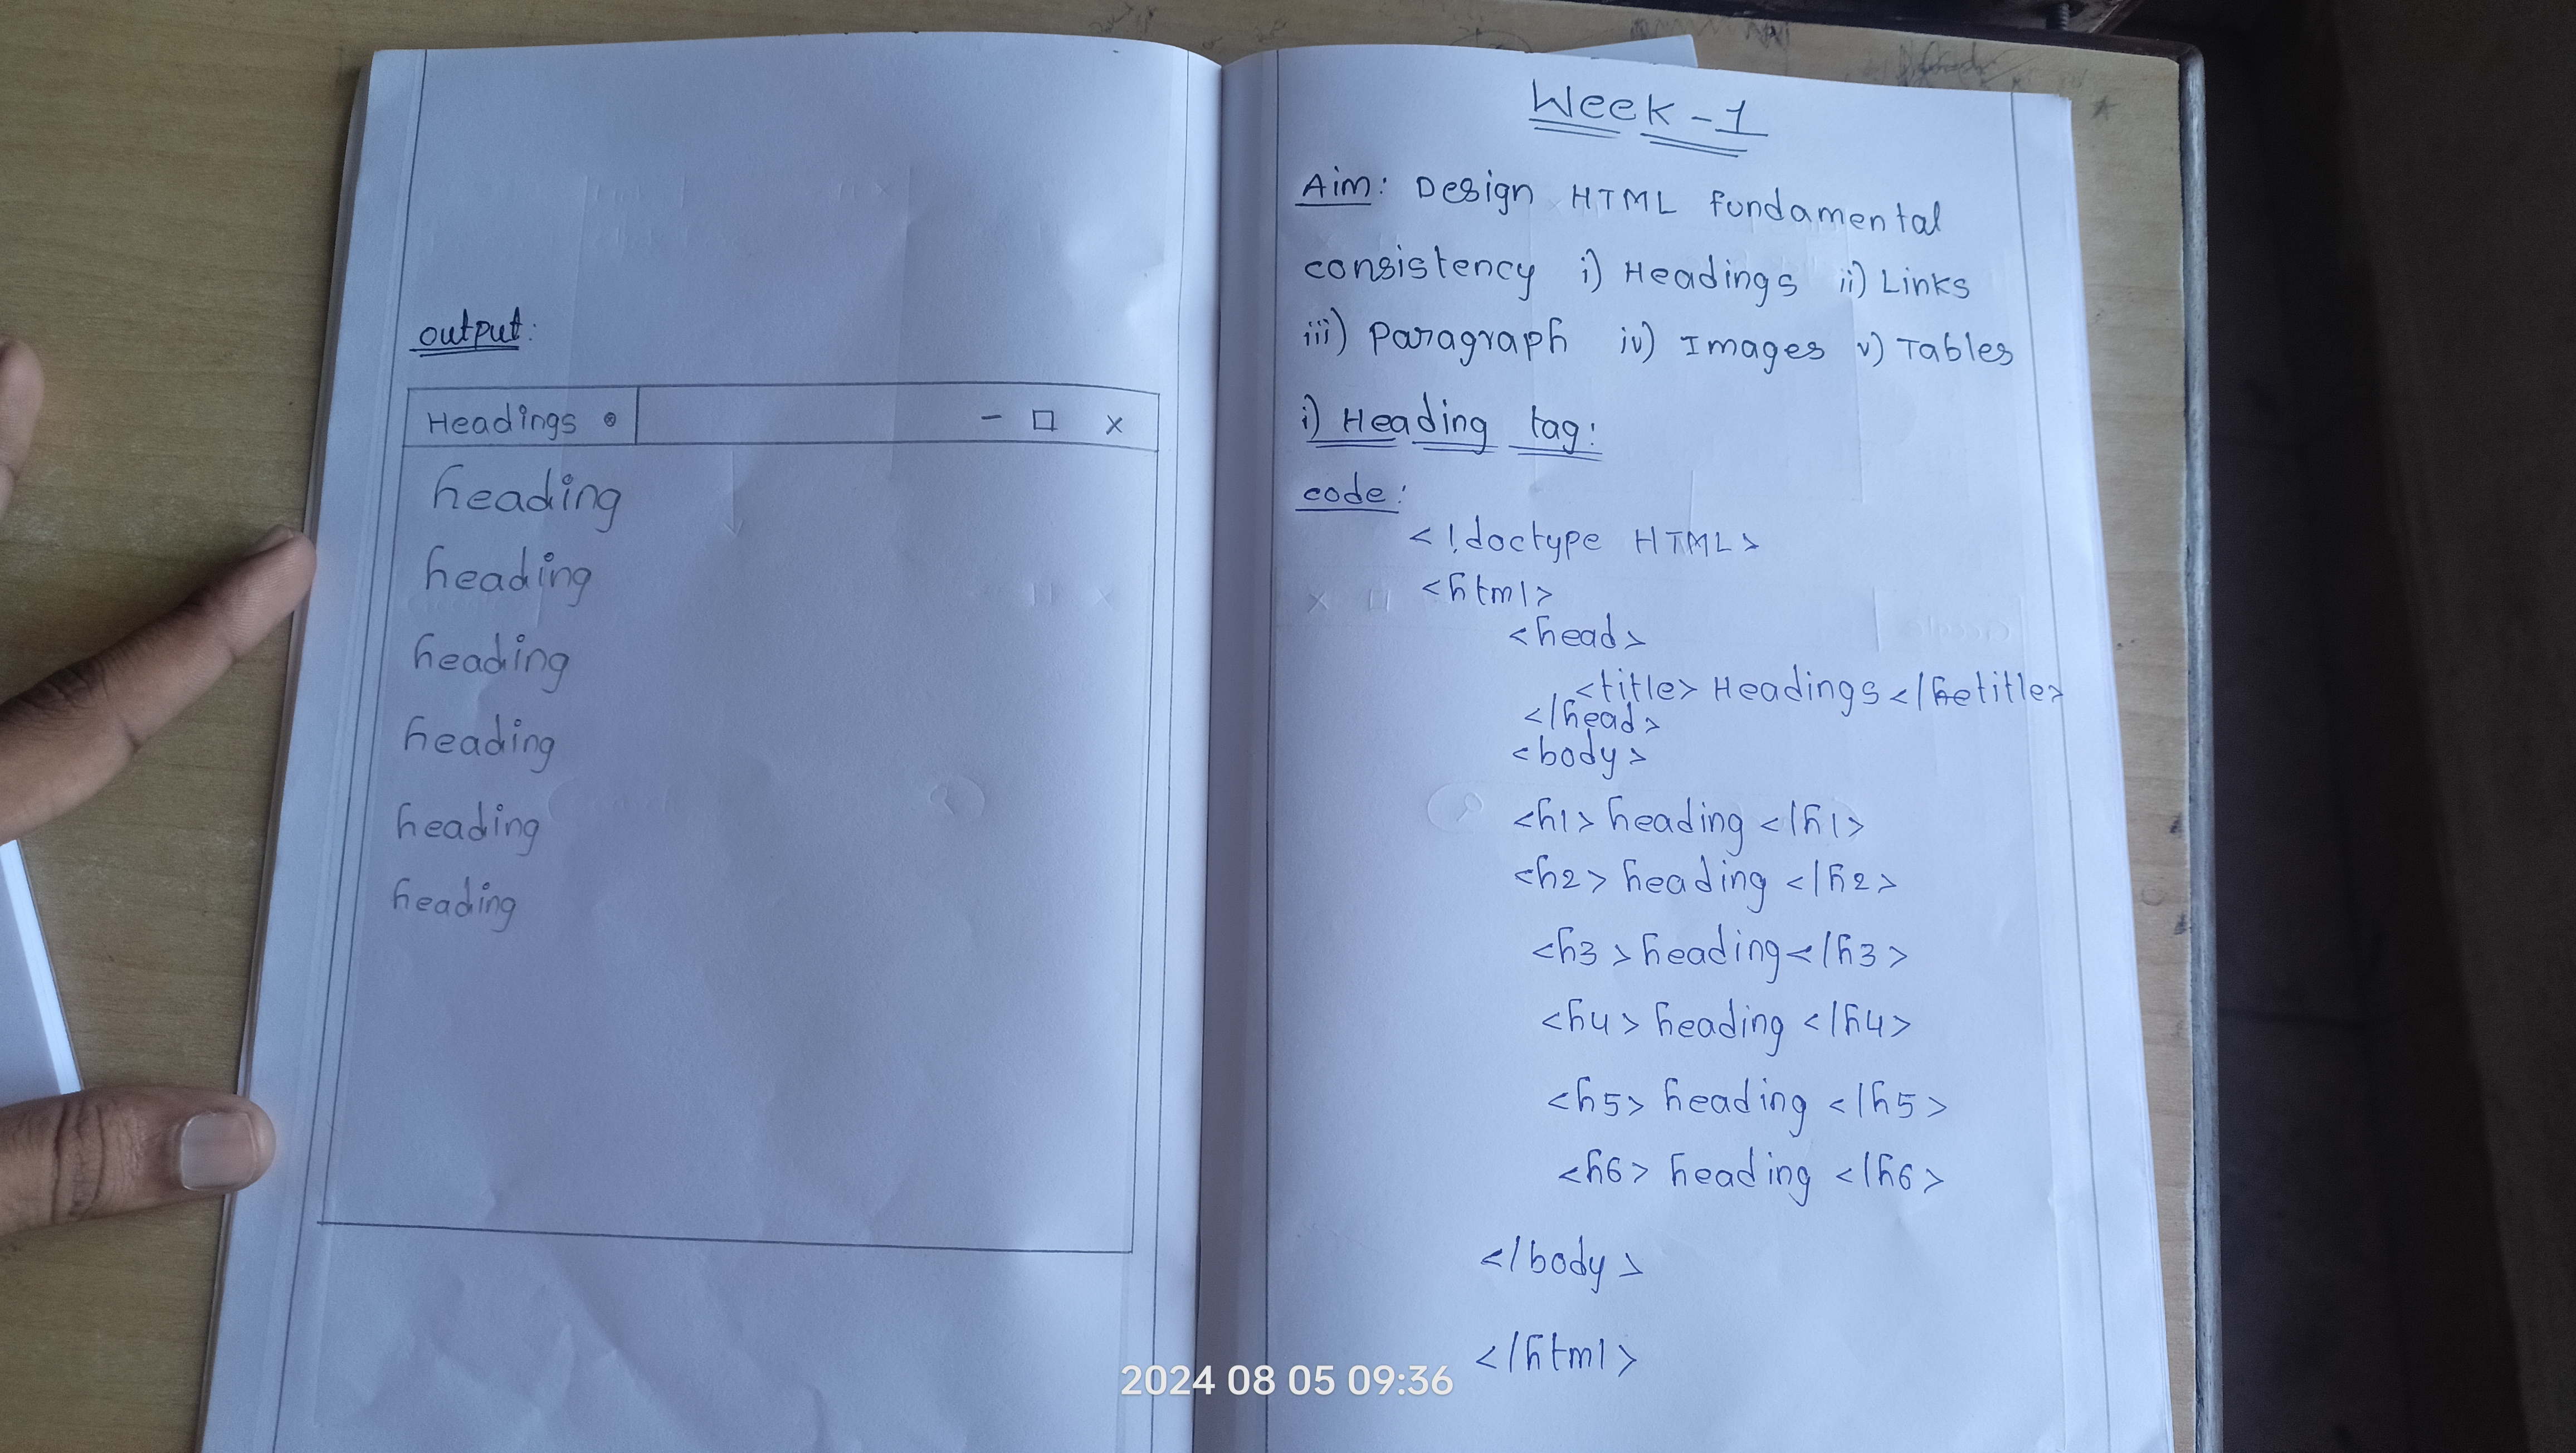 output:
Headings
heading
heading
heading
heading
heading
heading
Week-1
Aim: Design HTML fundamental
consistency i) Headings ii) Links
iii) Paragraph iv) Images v) Tables
i) Heading tag:
code:
<!doctype HTML>
<html>
<head>
<title> Headings </title>
</head>
<body>
<h1> heading </h1>
<h2> heading </h2>
<h3> heading </h3>
<h4> heading </h4>
<h5> heading </h5>
<h6> heading </h6>
</body>
</html>
2024 08 05 09:36